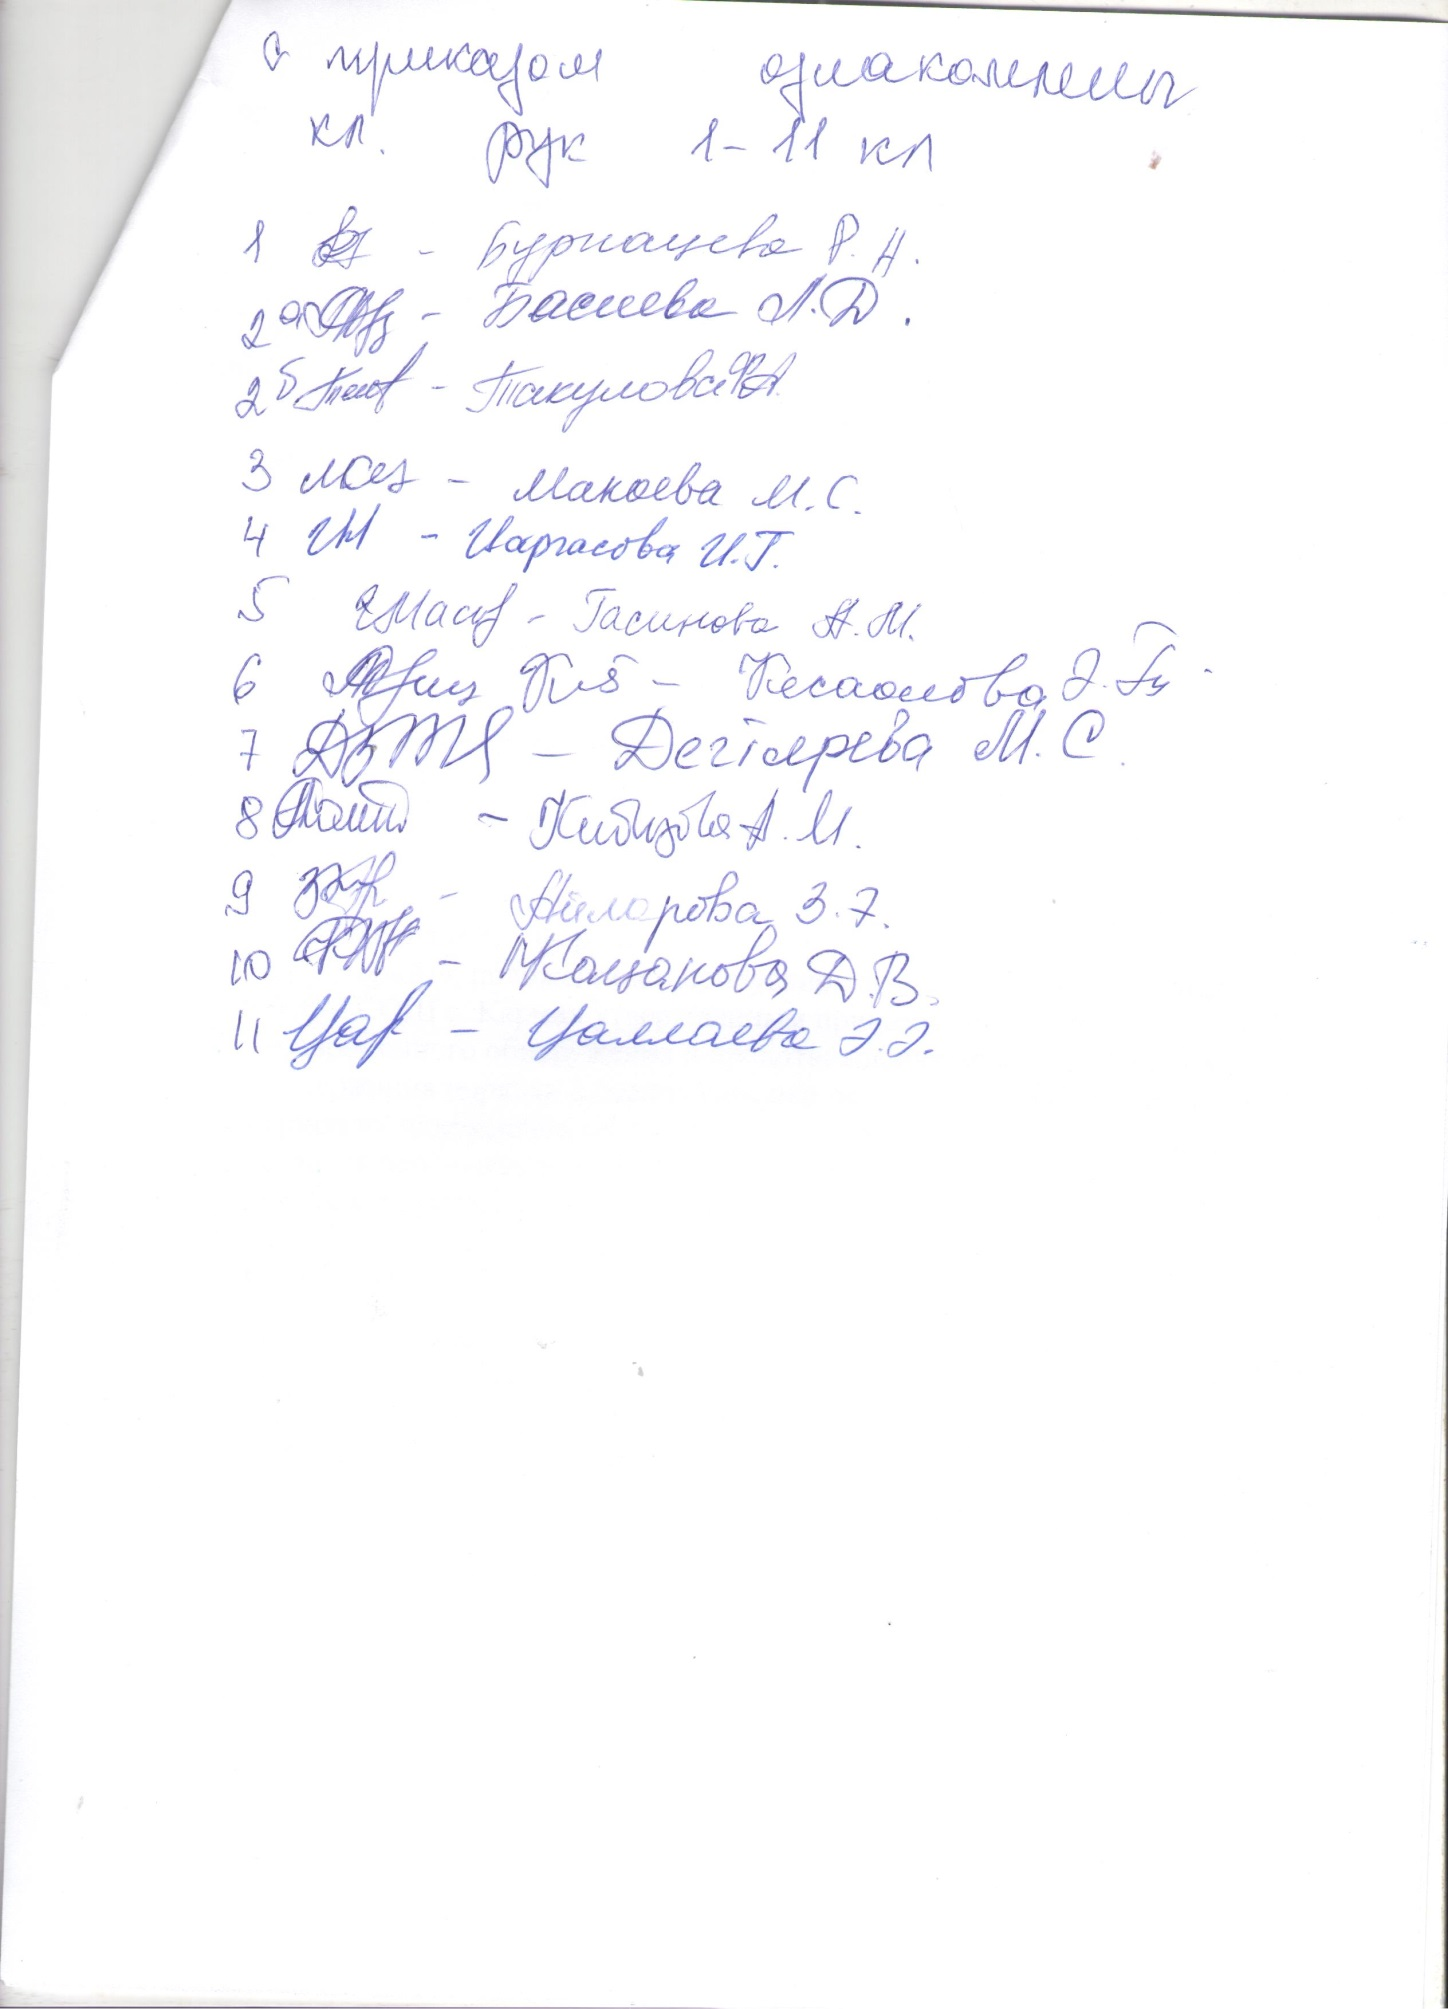 С приказом ознакомлены
кл. рук 1-11 кл
1 - Бурнацева Р. Н.
2а - Басиева Л. Д.
2б - Такулова
3 - Макоева М. С.
4 - Царгасова И. Г.
5 - Гасинова А. М.
6 - Кесаонова
7 - Дегтярева М. С.
8 - А. М.
9 - Айларова З.
10 - Кацанова Д. В.
11 - Цаллаева Э. Э.